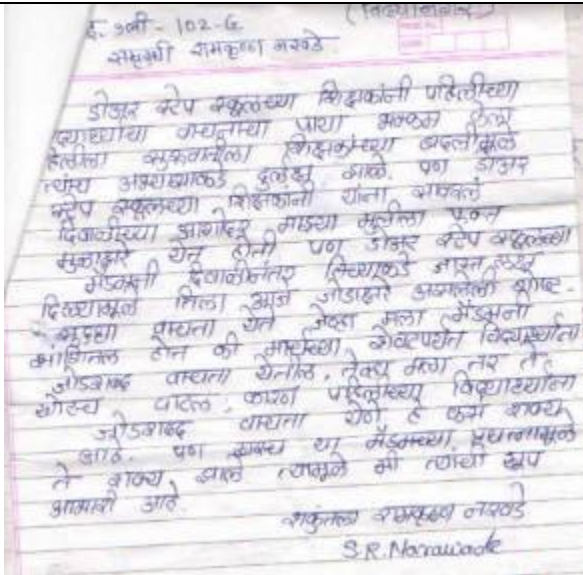 इ. १ली - 102-G. (विद्यानगर)
समृध्दी रामकृष्ण नरवडे.
डोअर स्टेप स्कूलच्या शिक्षकांनी पहिलीच्या
वाचनाचा पाया भक्कम केला
सुरुवातीला शिक्षकांच्या बदलीमुळे
त्यांच्या अभ्यासाकडे दुर्लक्ष झाले. पण डोअर
स्टेप स्कूलच्या शिक्षकांनी यांना सावरलं
दिवाळीच्या अगोदर माझ्या मुलीला फक्त
मुळाक्षरे येत होती पण डोअर स्टेप स्कूलच्या
मॅडमनी दिवाळीनंतर तिच्याकडे जास्त लक्ष
दिल्यामुळे तिला आज जोडाक्षरे असलेली
सुध्दा वाचता येते जेव्हा मला मॅडमनी
सांगितल होत की मार्चच्या शेवटपर्यंत विद्यार्थ्यांना
जोडशब्द वाचता येतील. तेव्हा मला तर ते
खोटच वाटल. कारण पहिलीच्या विद्यार्थ्यांना
जोडशब्द वाचता येणे हे कस शक्य
आहे. पण खरच या मॅडमच्या प्रयत्नामुळे
ते शक्य झाले त्यामुळे मी त्यांची खूप
आभारी आहे.
शकुंतला रामकृष्ण नरवडे
S.R.Narawade